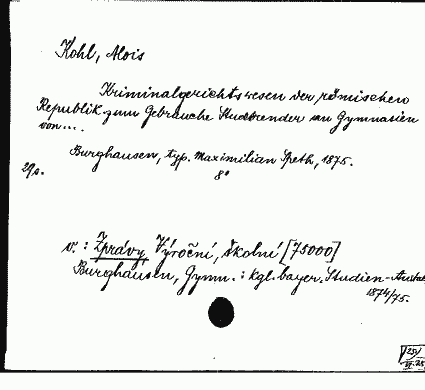 Kohl, Alois
Kriminalgerichtswesen der römischen
Republik zum Gebrauche Studirender an Gymnasien
von....
Burghausen, typ. Maximilian Speth, 1875.
29s. 8°
v.: Zprávy Výroční, školní [75000]
Burghausen, Gymn.: kgl. bayer. Studien-Anstalt
1874/75.